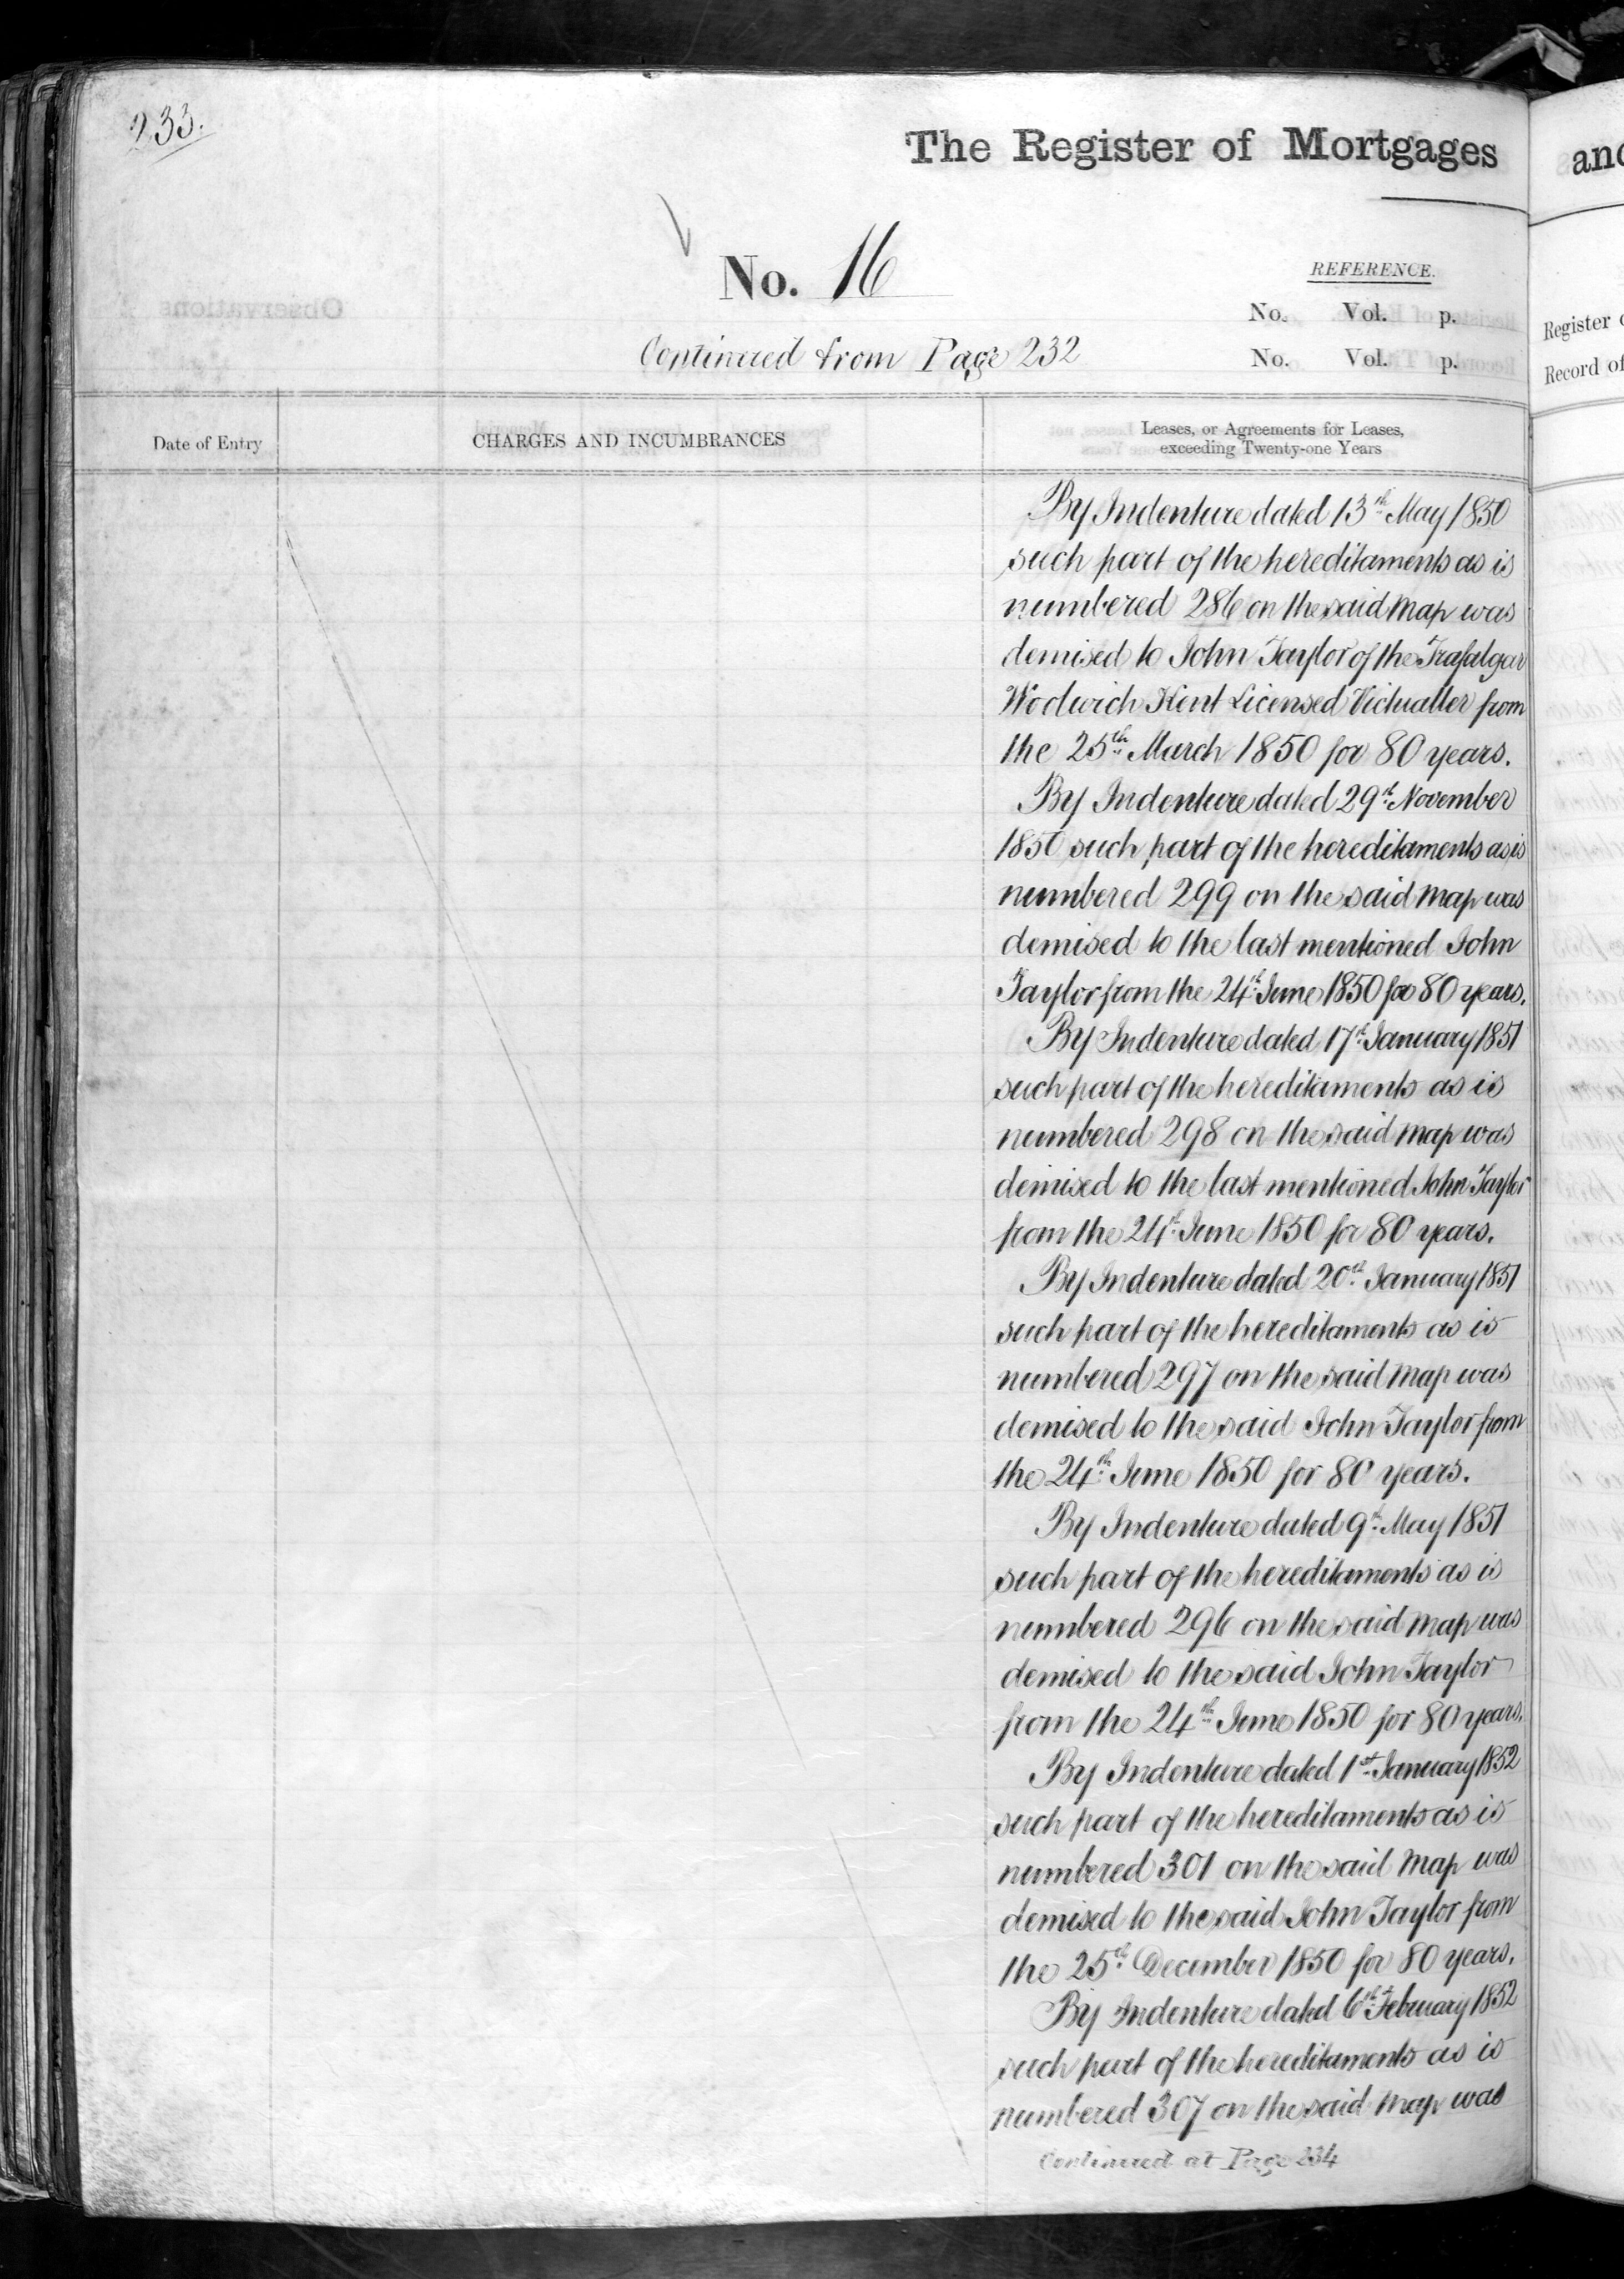 233.
The Register of Mortgages
No. 16
REFERENCE.
No. Vol. p.
Continued from Page 232
No. Vol. p.
Register
Record of
Date of Entry
CHARGES AND INCUMBRANCES
Leases, or Agreements for Leases,
exceeding Twenty-one Years
By Indenture dated 13th May 1850
such part of the hereditaments as is
numbered 286 on the said map was
demised to John Taylor of the Trafalgar
Woolwich Kent Licensed Victualler from
the 25th March 1850 for 80 years.
By Indenture dated 29th November
1850 such part of the hereditaments as is
numbered 299 on the said map was
demised to the last mentioned John
Taylor from the 24th June 1850 for 80 years.
By Indenture dated 17th January 1851
such part of the hereditaments as is
numbered 298 on the said map was
demised to the last mentioned John Taylor
from the 24th June 1850 for 80 years.
By Indenture dated 20th January 1851
such part of the hereditaments as is
numbered 297 on the said map was
demised to the said John Taylor from
the 24th June 1850 for 80 years.
By Indenture dated 9th May 1851
such part of the hereditaments as is
numbered 296 on the said map was
demised to the said John Taylor
from the 24th June 1850 for 80 years.
By Indenture dated 1st January 1852
such part of the hereditaments as is
numbered 301 on the said map was
demised to the said John Taylor from
the 25th December 1850 for 80 years.
By Indenture dated 6th February 1852
such part of the hereditaments as is
numbered 307 on the said map was
Continued at Page 234